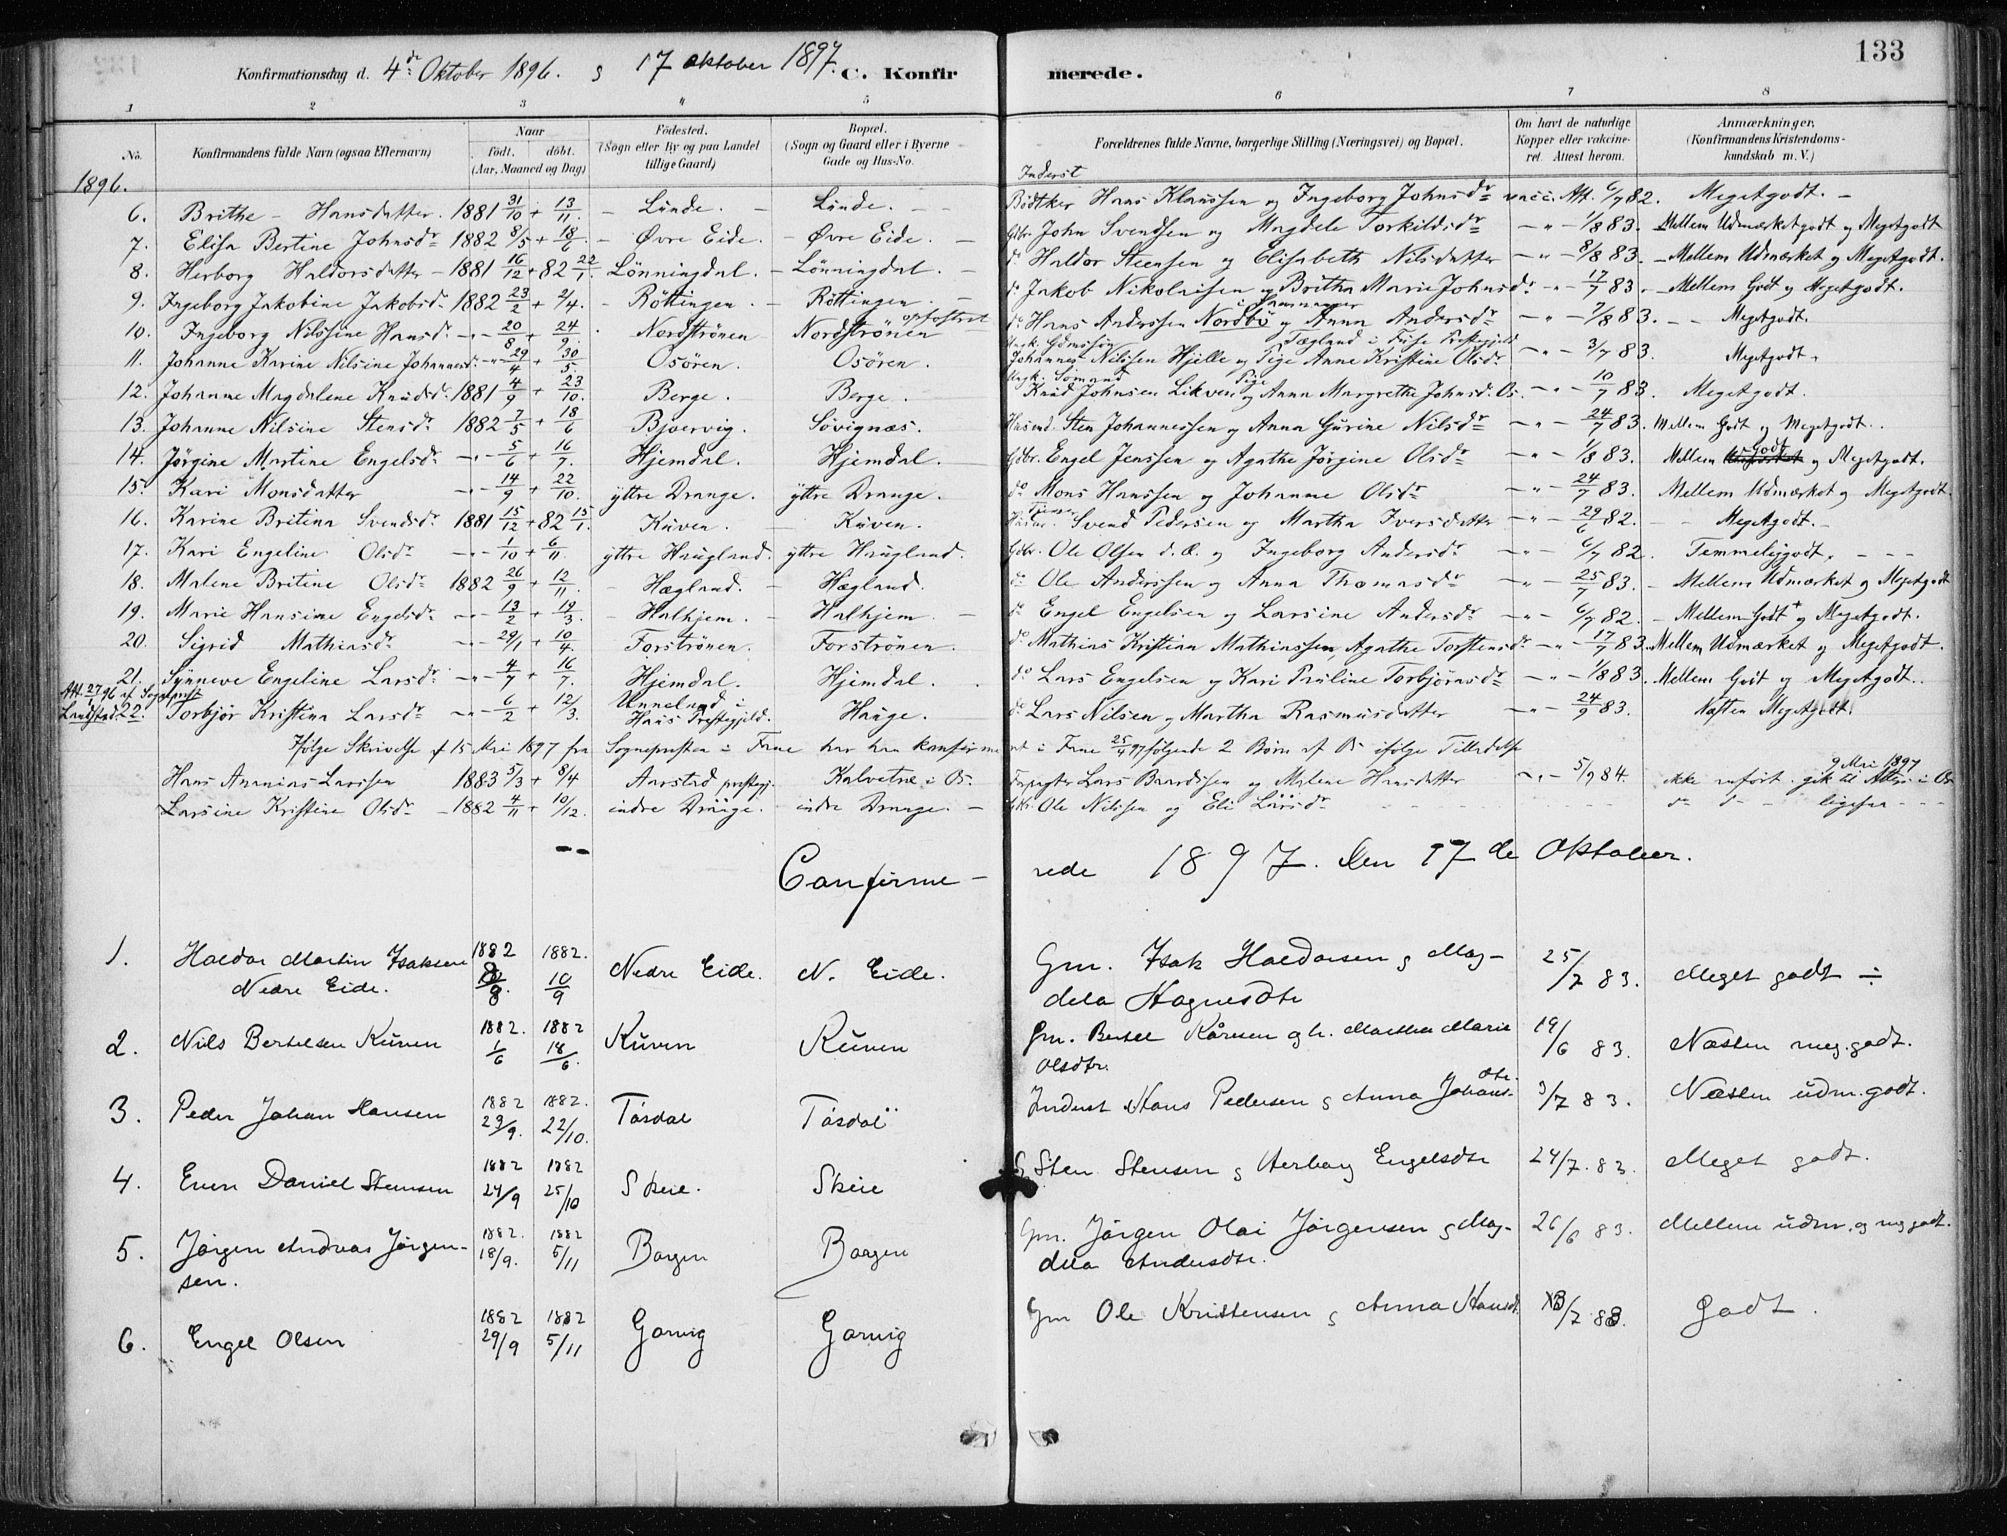 133
Konfirmationsdag d. 4de Oktober 1896. & 17 oktober 1897. C. Konfir merede.
1 2 3 4 5 6 7 8
No. Konfirmandens fulde Navn (ogsaa Efternavn) Naar födt. döbt. (Aar, Maaned og Dag) Födested. (Sogn eller By og paa Landet tillige Gaard) Bopæl. (Sogn og Gaard eller i Byerne Gade og Hus-No. Forældrenes fulde Navne, borgerlige Stilling (Næringsvei) og Bopæl. Om havt de naturlige Kopper eller vakcineret. Attest herom. Anmærkninger, (Konfirmandens Kristendomskundskab m. V.)
1896.
Inderst
6. Brithe - Hansdatter. 1881 31/10 + 13/11. - Lunde. - Lunde. - Bödtker Hans Klaussen og Ingeborg Johnsdr vacc. Att. 6/7 82. Megetgodt. -
7. Elisa Bertine Johnsdr 1882 8/5 + 18/6 - Øvre Eide. - Øvre Eide. - Gbr. John Svendsen og Magdele Torkildsdr - " - 1/8 83. - Mellem Udmærketgodt og Megetgodt
8. Herborg Haldorsdatter - 1881 16/12 + 82 22/1. Lönningdal. - Lönningdal. - do Haldor Steensen og Elisabeth Nilsdatter - " - 8/8 83. - Mellem Udmærket og Megetgodt.
9. Ingeborg Jakobine Jakobsdr 1882 23/2 + 2/4. - Röttingen. - Röttingen. - do Jakob Nikolaisen og Britha Marie Johnsdr - " - 17/7 83. - Mellem Godt og Megetgodt.
10. Ingeborg Nilssine Hansdr - " - 20/8 + 24/9. Nordströnen Nordströnen opfostret do Hans Anderssen Nordbö i Samnanger og Anna Andersdr - " - 7/8 83. - - Megetgodt.
11. Johanne Karine Nilsine Johannesdr - " - 29/4 + 30/5. Osören. Osören. Johannes Nilssen Hjelle og Pige Anne Kristine Olsdr - " - 3/7 83. Megetgodt.
12. Johanne Magdalene Knudsdr. 1881 4/9 + 23/10. Berge. Berge. Ungk. Sömand Knud Johnsen Likven og Pige Anna Margrethe Johnsd. Os. - " - 10/7 83. Megetgodt.
13. Johanne Nilsine Stensdr 1882 7/5 + 18/6 Bjørvig. Sövignæs. Husmd. Sten Johannessen og Anna Gurine Nilsdr - " - 24/7 83. Mellem Godt og Megetgodt.
14. Jörgine Martine Engelsdr - " - 5/6 + 16/7. Hjemdal. Hjemdal. Gdbr. Engel Jenssen og Agathe Jörgine Olsdr - " - 1/8 83. Mellem Godt og Megetgodt.
15. Kari Monsdatter - " - 14/9 + 22/10. yttre Drange. yttre Drange. do Mons Hanssen og Johanne Olsdr - " - 24/7 83. Mellem Udmærket og Megetgodt.
16. Karine Britina Svendsdr. 1881 15/12 + 82 15/1. Kuven. - Kuven. Svend Pedersen og Martha Iversdatter - " - 29/6 82. - - Megetgodt. -
17. Kari Engeline Olsdr - " - 1/10 + 6/11. yttre Haugland. yttre Haugland. Gdbr. Ole Olsen d. Æ. og Ingeborg Andersdr - " - 6/7 82. Temmeliggodt. - - -
18. Malene Britine Olsdr 1882 26/9 + 12/11. - Hægland. - Hægland. do Ole Anderssen og Anna Thomasdr - " - 25/7 83. - Mellem Udmærket og Megetgodt
19. Marie Hansine Engelsdr - " - 13/2 + 19/3. - Halhjem. - Halhjem - do Engel Engelsen og Larsine Andersdr - " - 6/7 82. - Mellem Godt og Megetgodt.
20. Sigrid Mathiasdr - " - 29/1 + 10/4. Forströnen. Forströnen. do Mathias Kristian Mathiassen, Agathe Torstensdr - " - 17/7 83. Mellem Udmærket og Megetgodt.
21. Synneve Engeline Larsdr - " - 4/7 + 16/7. Hjemdal. Hjemdal. do Lars Engelsen og Kari Pauline Torbjörnsdr - " - 1/8 83. Mellem Godt og Megetgodt.
Att. 27/1 96 af Sogneprest Landstad 22. Torbjør Kristina Larsdr - " - 6/2 + 12/3. Unneland i Haus Prestegjeld. Hauge. do Lars Nilsen og Martha Rasmusdatter - " - 24/9 83. Næsten Megetgodt.
Ifölge Skrivelse af 15 Mai 1897 fra Sognepresten i Fane har han konfirmeret i Fane 25/4 97 følgende 2 Børn af Os ifølge Tilladelse
Hans Ananias Larssen 1883 5/3 + 8/4 Aarstad prestegj. Kalvetræ i Os. Forpagter Lars Baardssen og Malene Hansdatter - " - 5/9 84. ikke anført. gik til Alters i Os 9 Mai 1897
Larsine Kristine Olsdr - 1882 4/11 + 10/12. indre Drange. - indre Drange. - Ole Nilssen og Eli Larsdr - - do - ligesaa - -
Confirme- rede 1897. den 17de Oktober.
1. Haldor Martin Isaksen Nedre Eide. 1882 8/8. 1882. 10/9 Nedre Eide. N. Eide. Gm. Isak Haldorsen & Magdela Hagnesdtr 25/7 83. Meget godt ÷
2. Nils Bertelsen Kuven 1882. 1/6 1882 18/6. Kuven Kuven Gm. Bertel Kåresen og h. Martha Marie Olsdtr. 19/6 83. Næsten meg. godt.
3. Peder Johan Hansen 1882 29/9. 1882. 22/10. Tösdal Tösdal Inderst Hans Pedersen & Anna Johansdtr. 3/7 83. Næsten udm. godt.
4. Even Daniel Stensen 1882 24/9 1882 25/10 Skeie. Skeie G. Sten Stensen & Herborg Engelsdtr 24/7. 83. Meget godt.
5. Jørgen Andreas Jørgensen. 1882. 18/9. 1882 5/11 Borgen Borgen Gm. Jørgen Olai Jørgensen & Magdela Andersdtr. 26/6 83. Mellem udm. og meg godt.
6. Engel Olsen 1882 29/9 1882 5/11 Gorvig Gorvig Gm Ole Kristensen & Anna Hansdt. /7 83. Godt.